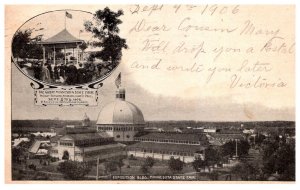 Sept 4th 1906
Dear Cousin Mary
Will drop you a Postal
and write you later
Victoria
THE GREAT MINNESOTA STATE FAIR
EXPOSITION BLDG. MINNESOTA STATE FAIR.